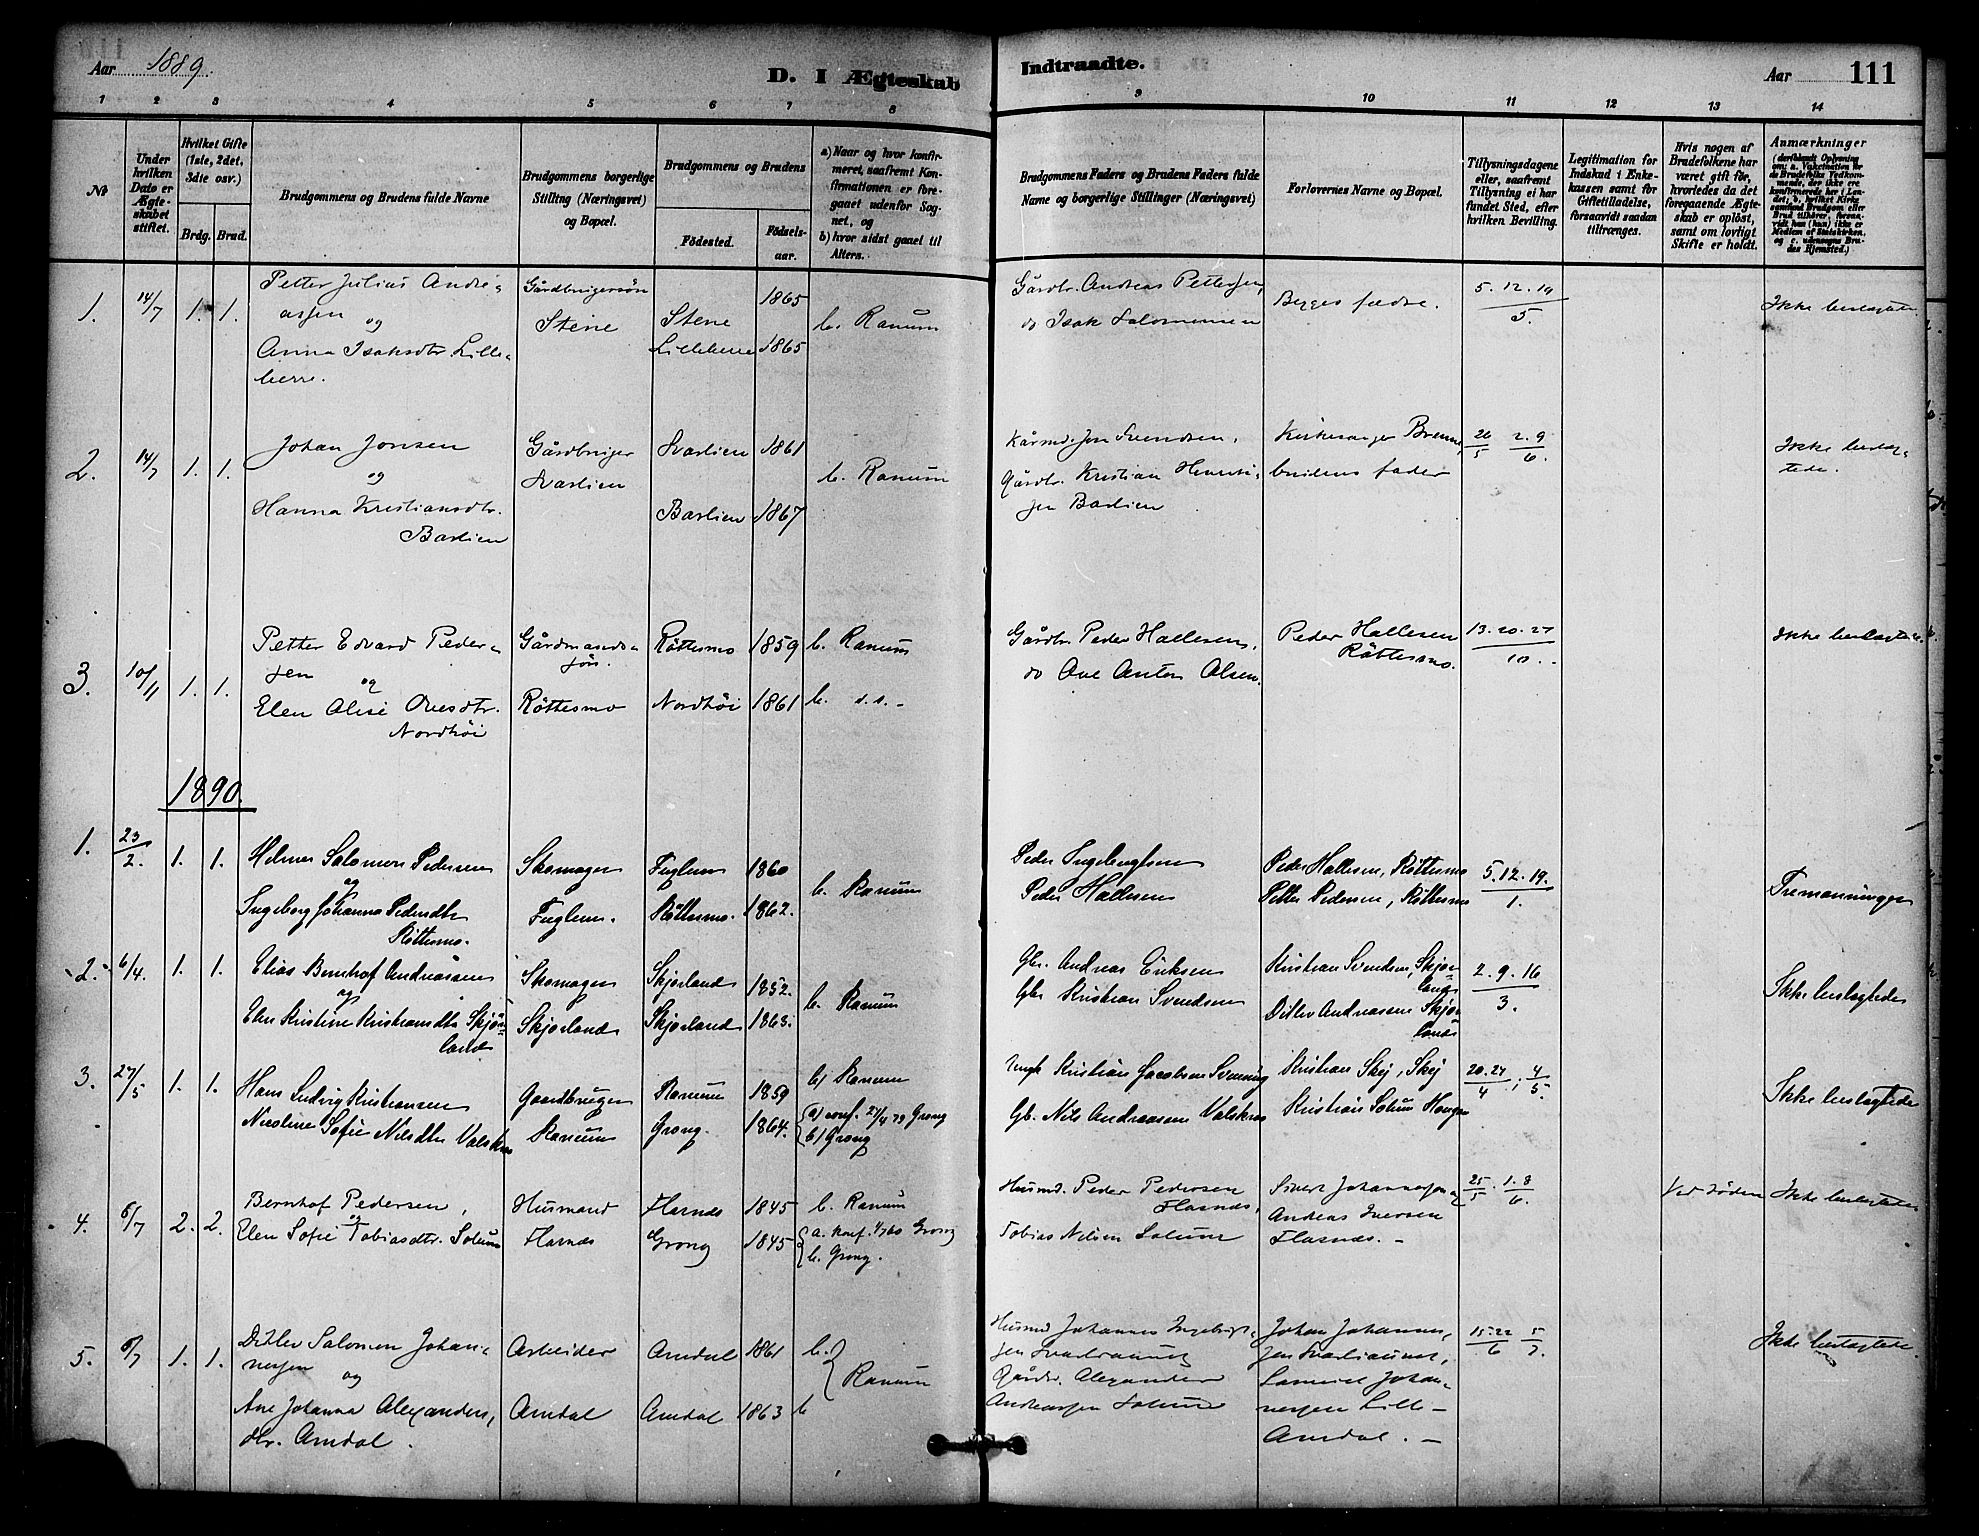 Aar 1889.
D. I Ægteskab Indtraadte.
Aar 111
1 2 3 4 5 6 7 8 9 10 11 12 13 14
No
Under hvilken Dato er Ægteskabet stiftet.
Hvilket Gifte (1ste, 2det, 3die osv.)
Brdg. Brud.
Brudgommens og Brudens fulde Navne
Brudgommens borgerlige Stilling (Næringsvei) og Bopæl.
Brudgommens og Brudens
Födested.
Födsels-aar.
a) Naar og hvor konfirmeret, saafremt Konfirmationen er foregaaet udenfor Sognet, og
b) hvor sidst gaaet til Alters.
Brudgommens Faders og Brudens Faders fulde Navne og borgerlige Stillinger (Næringsvei)
Forlovernes Navne og Bopæl.
Tillysningsdagene eller, saafremt Tillysning ei har fundet Sted, efter hvilken Bevilling.
Legitimation for Indskud i Enkekassen samt for Giftetilladelse, forsaavidt saadan tiltrænges.
Hvis nogen af Brudefolkene har været gift för, hvortedes da det foregaaende Ægteskab er oplöst, samt om lovligt Skifte er holdt.
Anmærkninger
1. 14/7 1. 1. Petter Julius Andreassen og
Anna Isaksdtr. Lilleberre.
Gårdbrugersön Stene
Stene 1865
Lilleberre 1865
b. Ranum
Gårdbr. Andreas Pettersen,
do Isak Salomonsen
Begges fædre.
5. 12. 19/5.
Ikke beslægtede
2. 14/7 1. 1. Johan Jonsen
og
Hanna Kristiansdtr. Barlien
Gårdbruger Svarlien
Svarlien 1861
Barlien 1867
b. Ranum
Kårmd. Jon Svendsen,
Gårdbr. Kristian Henriksen Barlien
Kirkesanger Brenne,
brudens fader
26/5 2. 9/6.
Ikke beslægtede.
3. 10/11 1. 1. Petter Edvard Pedersen og
Elen Alise Ovesdtr. Nordhöi
Gårdmandssön
Röttesmo
Röttesmo 1859 b. Ranum
Nordhöi 1861 b. d.s.
Gårdbr. Peder Hallesen,
do Ove Anton Olsen.
Peder Hallesen Röttesmo.
13. 20. 27/10.
Ikke beslægtede
1890.
1. 23/2. 1. 1. Helmer Salomon Pedersen
og
Ingeborg Johanna Pedersdtr Röttesmo.
Skomager
Fuglem.
Fuglem 1860
Röttesmo. 1862.
b. Ranum
Peder Ingebrigtsen
Peder Hallesen
Peder Hallesen, Röttesmo
Petter Pedersen, Röttesmo
5. 12. 19./1.
Tremænninger
2. 6/4. 1. 1. Elias Bernhof Andreassen
og
Elen Kristine Kristiansdtr Skjörland
Skomager
Skjörland
Skjörland 1852.
Skjörland 1863.
b. Ranum
Gbr. Andreas Eriksen
Gbr Kristian Svendsen
Kristian Svendsen, Skjörland
Ditlev Andreassen Skjörland
2. 9. 16/3.
Ikke beslægtede
3. 27/5 1. 1. Hans Ludvig Kristiansen
Nicoline Sofie Nilsdtr Valskraa
Gaardbruger
Ranum
Ranum 1859
Grong. 1864.
b) Ranum
a) conf. 27/4 79 Grong
b) Grong
Kristian Jacobsen Svenning
Gb. Nils Andreassen Valskraa
Kristian Skej, Skej
Kristian Solum Haugen
20. 27/4; 4/5.
Ikke beslægtede
4. 6/7 2. 2. Bernhof Pedersen,
og
Elen Sofie Tobiasdtr. Solum
Husmand
Flasnes
Flasnes 1845
Grong 1845
b. Ranum
a. konf. 1/7 60 Grong
b. Grong.
Husmd. Peder Pedersen Flasnes,
Tobias Nilsen Solum
Sivert Johannessen og
Andreas Iversen
Flasnes.
25/5. 1. 8/6.
Ved döden
Ikke beslægtede
5. 6/7 1. 1. Ditlev Salomon Johannessen
og
Ane Johanna Alexandersdtr. Amdal.
Arbeider
Amdal
Amdal 1861
Amdal 1863
b.
b
Ranum
Husmd Johannes Ingebrigtsen
Gårdbr. Alexander
Andreassen Solum
Johan Johannessen
Johannessen Lille-
Amdal.
15. 22/6 5/7.
Ikke beslægtede.